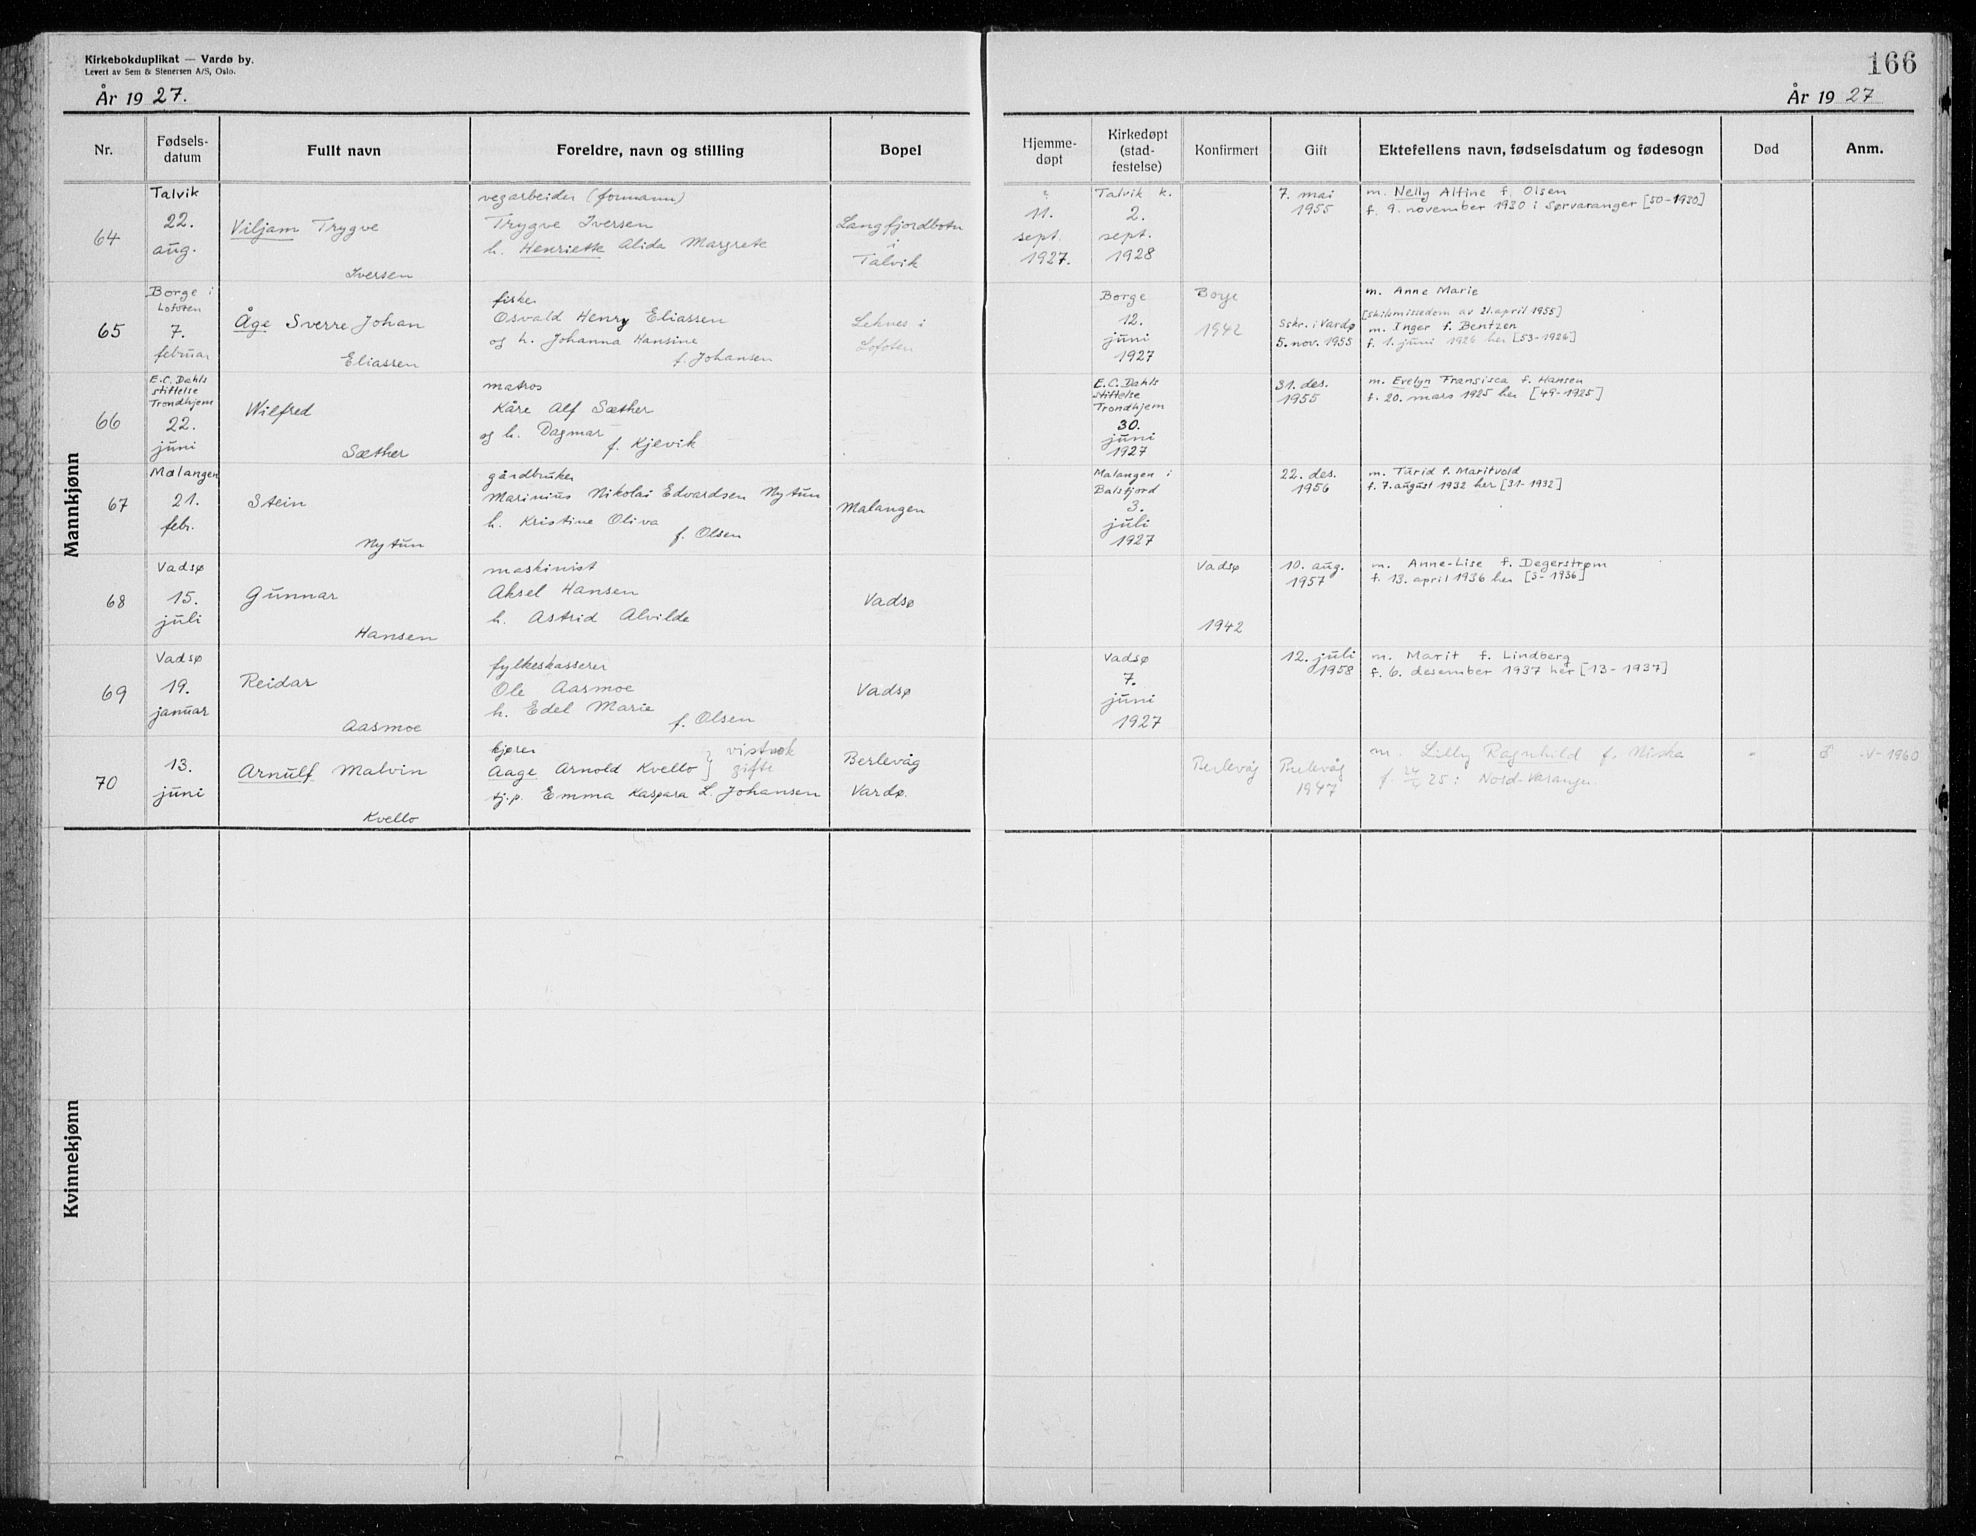 Kirkebokduplikat — Vardø by.
Levert av Sem & Stenersen A/S, Oslo.
166
År 1927.
År 1927
Nr.
Fødselsdatum
Fullt navn
Foreldre, navn og stilling
Bopel
Hjemmedøpt
Kirkedøpt (stadfestelse)
Konfirmert
Gift
Ektefellens navn, fødselsdatum og fødesogn
Død
Anm.
Mannkjønn
64
Talvik
22.
aug.
Viljam Trygve
Iversen
vegarbeider (formann)
Trygve Iversen
h. Henriette Alida Margrete
Langfjordbotn
i
Talvik
11.
sept.
1927.
Talvik k.
2.
sept.
1928
7. mai
1955
m. Nelly Alfine f. Olsen
f. 9. november 1930 i Sørvaranger [50-1930]
65
Borge i
Lofoten
7.
februar
Åge Sverre Johan
Eliassen
fisker
Osvald Henry Eliassen
og h. Johanna Hansine
f. Johansen
Leknes i
Lofoten
Borge
12.
juni
1927
Borge
1942
Sskr. i Vardø
5. nov. 1955
m. Anne Marie
[Skilsmissedom av 21. april 1955]
m. Inger f. Bentzen
f. 1. juni 1926 her [53-1926]
66
E.C. Dahls
stiftelse
Trondhjem
22.
juni
Wilfred
Sæther
matros
Kåre Alf Sæther
og h. Dagmar
f. Kjevik
E.C. Dahls
stiftelse
Trondhjem
30.
juni
1927
31. des.
1955
m. Evelyn Fransisca f. Hansen
f. 20. mars 1925 her [49-1925]
67
Malangen
21.
febr.
Stein
Nytun
gårdbruker
Marinius Nikolai Edvardsen Nytun
h. Kristine Oliva
f. Olsen
Malangen
Malangen i
Balsfjord
3.
juli
1927
22. des.
1956
m. Turid f. Maritvold
f. 7. august 1932 her [31-1932]
68
Vadsø
15.
juli
Gunnar
Hansen
maskinist
Aksel Hansen
h. Astrid Alvilde
Vadsø
Vadsø
1942
10. aug.
1957
m. Anne-Lise f. Degerstrøm
f. 13. april 1936 her [3-1936]
69
Vadsø
19.
januar
Reidar
Aasmoe
fylkeskasserer
Ole Aasmoe
h. Edel Marie
f. Olsen
Vadsø
Vadsø
7.
juni
1927
12. juli
1958
m. Marit f. Lindberg
f. 6. desember 1937 her [13-1937]
70
13.
juni
Arnulf Malvin
Kvello
kjører
Aage Arnold Kvello } vistnok
gifte
tj.p. Emma Kaspara L. Johansen
Berlevåg
Vardø.
Berlevåg
Berlevåg
1947
m. Lilly Ragnhild f. Niska
f. 25 i Nord-Varanger
V-1960
Kvinnekjønn